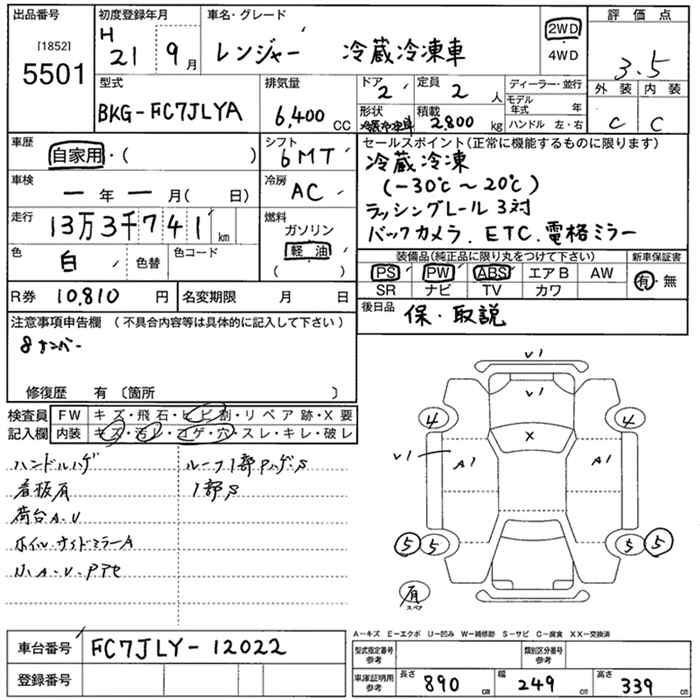 出品番号
[1852]
5501
初度登録年月
H 21 9月
車名・グレード
レンジャー 冷蔵冷凍車
2WD
4WD
評価点
3.5
型式
BKG-FC7JLYA
排気量
6,400 CC
ドア
2
定員
2 人
ディーラー・並行
モデル年式 年
ハンドル 左・右
外装 内装
C C
形状
冷蔵冷凍車
積載
2,800 kg
車歴
自家用・( )
シフト
6MT
セールスポイント(正常に機能するものに限ります)
冷蔵冷凍
(-30℃~20℃)
ラッシングレール3対
バックカメラ.ETC.電格ミラー
車検
ー年ー月( 日)
冷房
AC
走行
13万3千741km
燃料
ガソリン
軽油
( )
色
白
色替
色コード
装備品(純正品に限り丸をつけて下さい)
新車保証書
PS PW ABS エアB AW
有・無
SR ナビ TV カワ
R券 10,810 円
名変期限 月 日
後日品
保・取説
注意事項申告欄(不具合内容等は具体的に記入して下さい)
8ナンバー
修復歴 有〔箇所 〕
検査員
記入欄
FW キズ・飛石・ヒビ割・リペア跡・X要
内装 キズ・汚レ・コゲ・穴・スレ・キレ・破レ
ハンドルハゲ
ルーフ1部Pハゲ・S
看板有
1部S
荷台A・U
ホイル・サイドミラーA
小A・U・P
V1
V1
4
4
X
V1
A1
A1
5 5
5 5
有
スペア
車台番号
FC7JLY-12022
登録番号
A-キズ E-エクボ U-凹み W-補修跡 S-サビ C-腐食 XX-交換済
型式指定番号
参考
類別区分番号
参考
車庫証明用
参考
長さ
890 cm
幅
249 cm
高さ
339 cm